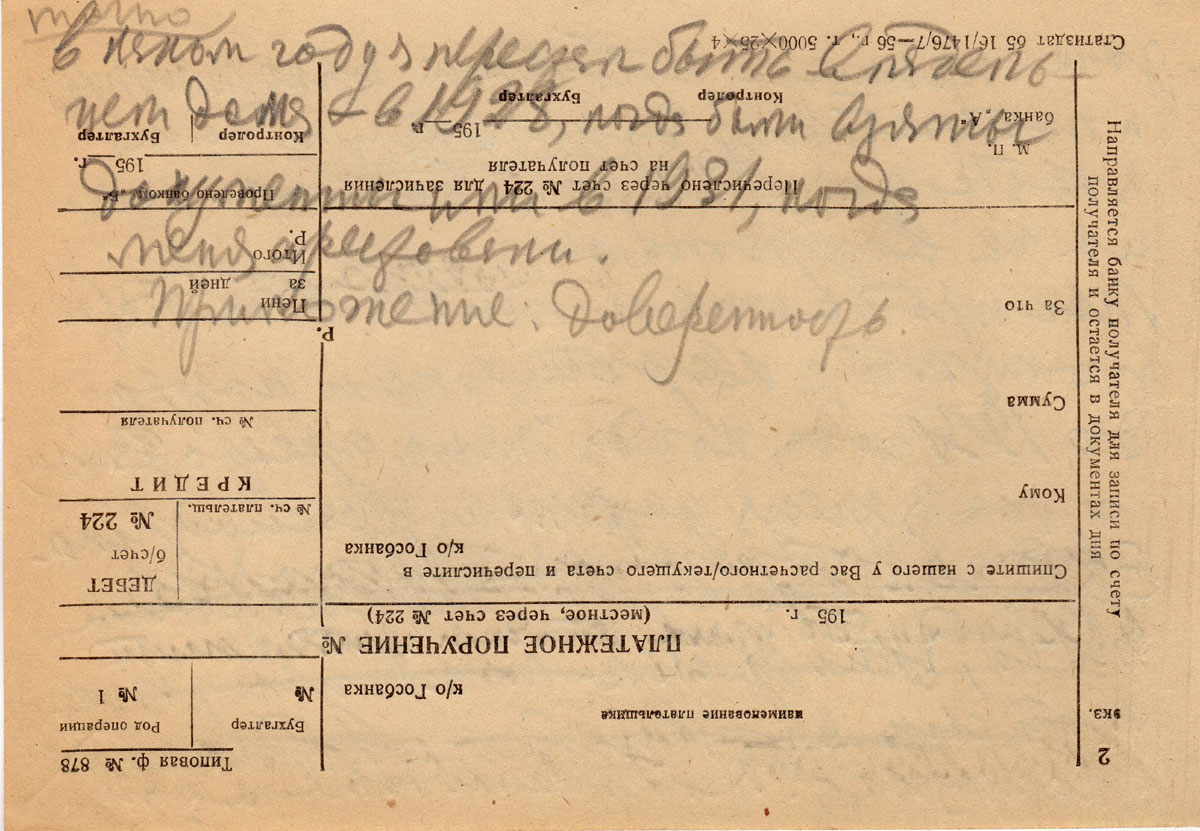 точно
в каком году я перестал быть владель-
цем дома – в 1928, когда были взяты
документы или в 1931, когда
меня арестовали.
Приложение: доверенность.
2
экз.
Направляется банку получателя для записи по счету
получателя и остается в документах дня
Типовая ф. № 878
Бухгалтер
Род операции
наименование плательщика
к/о Госбанка
№
№ 1
ПЛАТЕЖНОЕ ПОРУЧЕНИЕ №
195 г. (местное, через счет № 224)
Спишите с нашего у Вас расчетного/текущего счета и перечислите в
к/о Госбанка
ДЕБЕТ
б/счет
№ 224
№ сч. плательщ.
Кому
КРЕДИТ
Сумма
№ сч. получателя
Р.
За что
Пени
за дней
Итого
Р.
Перечислено через счет № 224 для зачисления
на счет получателя
Проведено банком „Б“
М. П.
банка „А“
195 г.
195 г.
Контролер Бухгалтер
Контролер Бухгалтер
Статиздат 65 16/1476/7—56 г., т. 5000×25×4